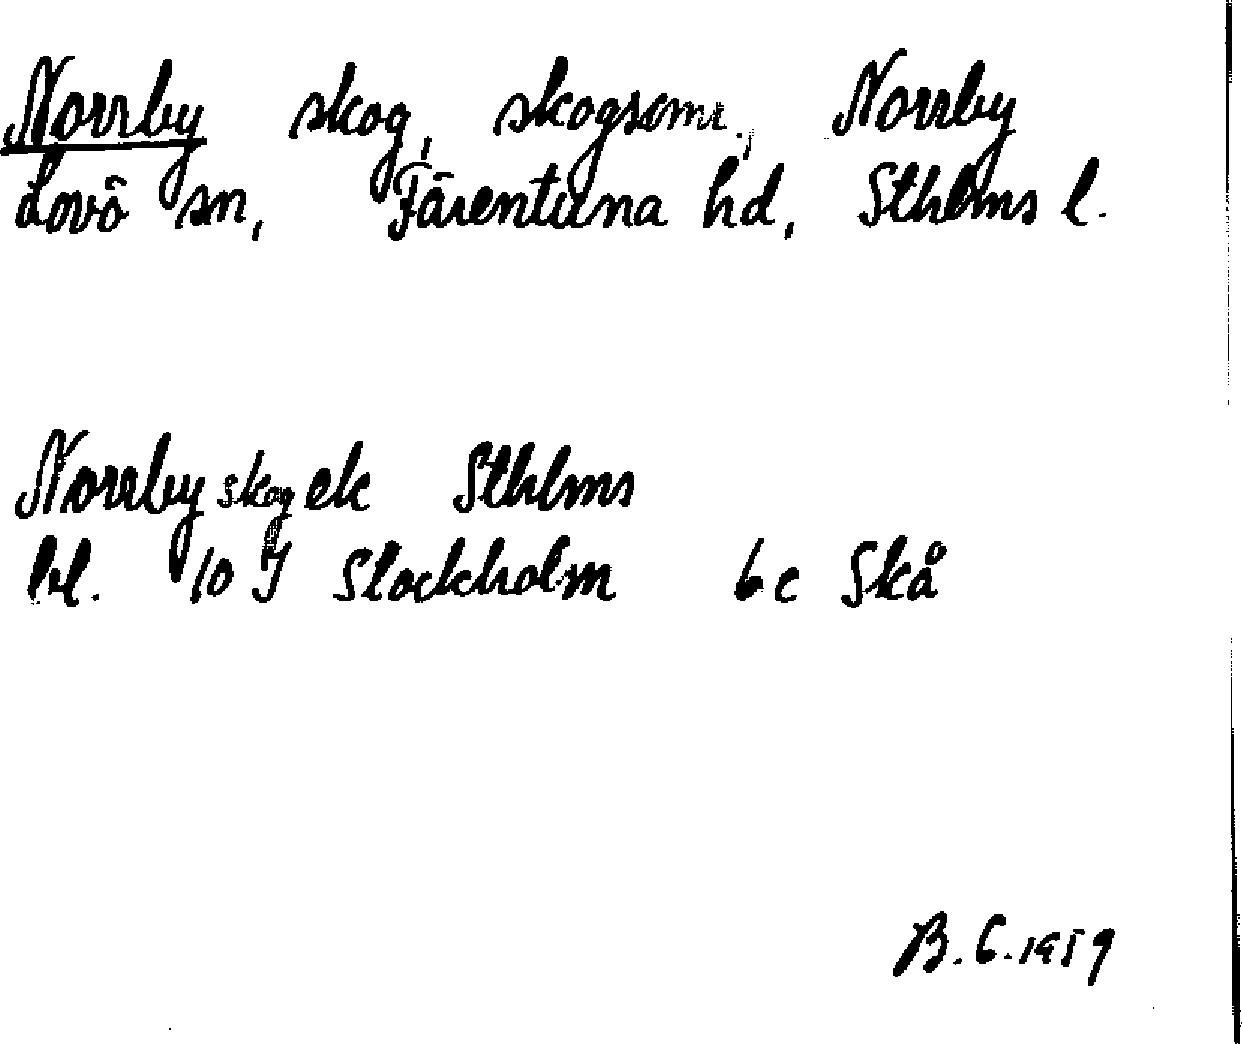 Norrby skog, skogsomr., Norrby
Lovö sn, Färentuna hd, Sthlms l.
Norrby skog ek Sthlms
bl. 10 I Stockholm 6c Skå
B. C. 1959